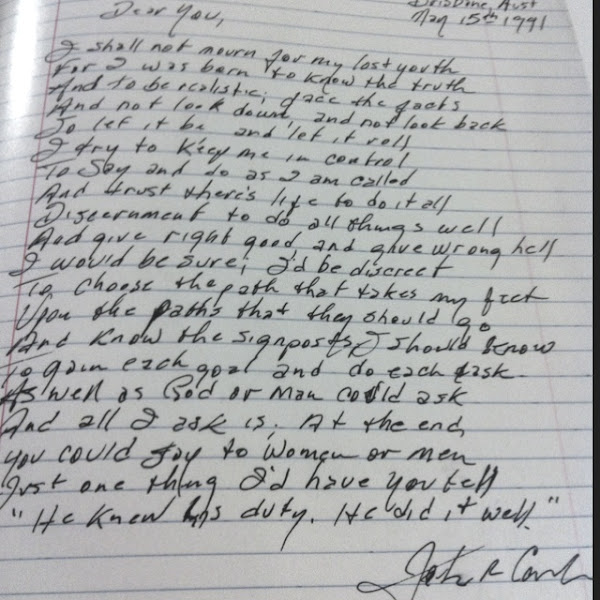 Brisbane, Aust
May 15th 1991
Dear You,
I shall not mourn for my lost youth
For I was born to know the truth
And to be realistic; face the facts
And not look down, and not look back
To let it be and let it roll
I try to keep me in control
To Say and do as I am called
And trust there's life to do it all
Discernment to do all things well
And give right good, and give wrong hell
I would be sure; I'd be discreet
To choose the path that takes my feet
Upon the paths that they should go
And know the signposts I should know
To gain each goal and do each task
As well as God or Man could ask
And all I ask is, At the end,
you could say to Women or men
Just one thing I'd have you tell
"He knew his duty. He did it well."
John R